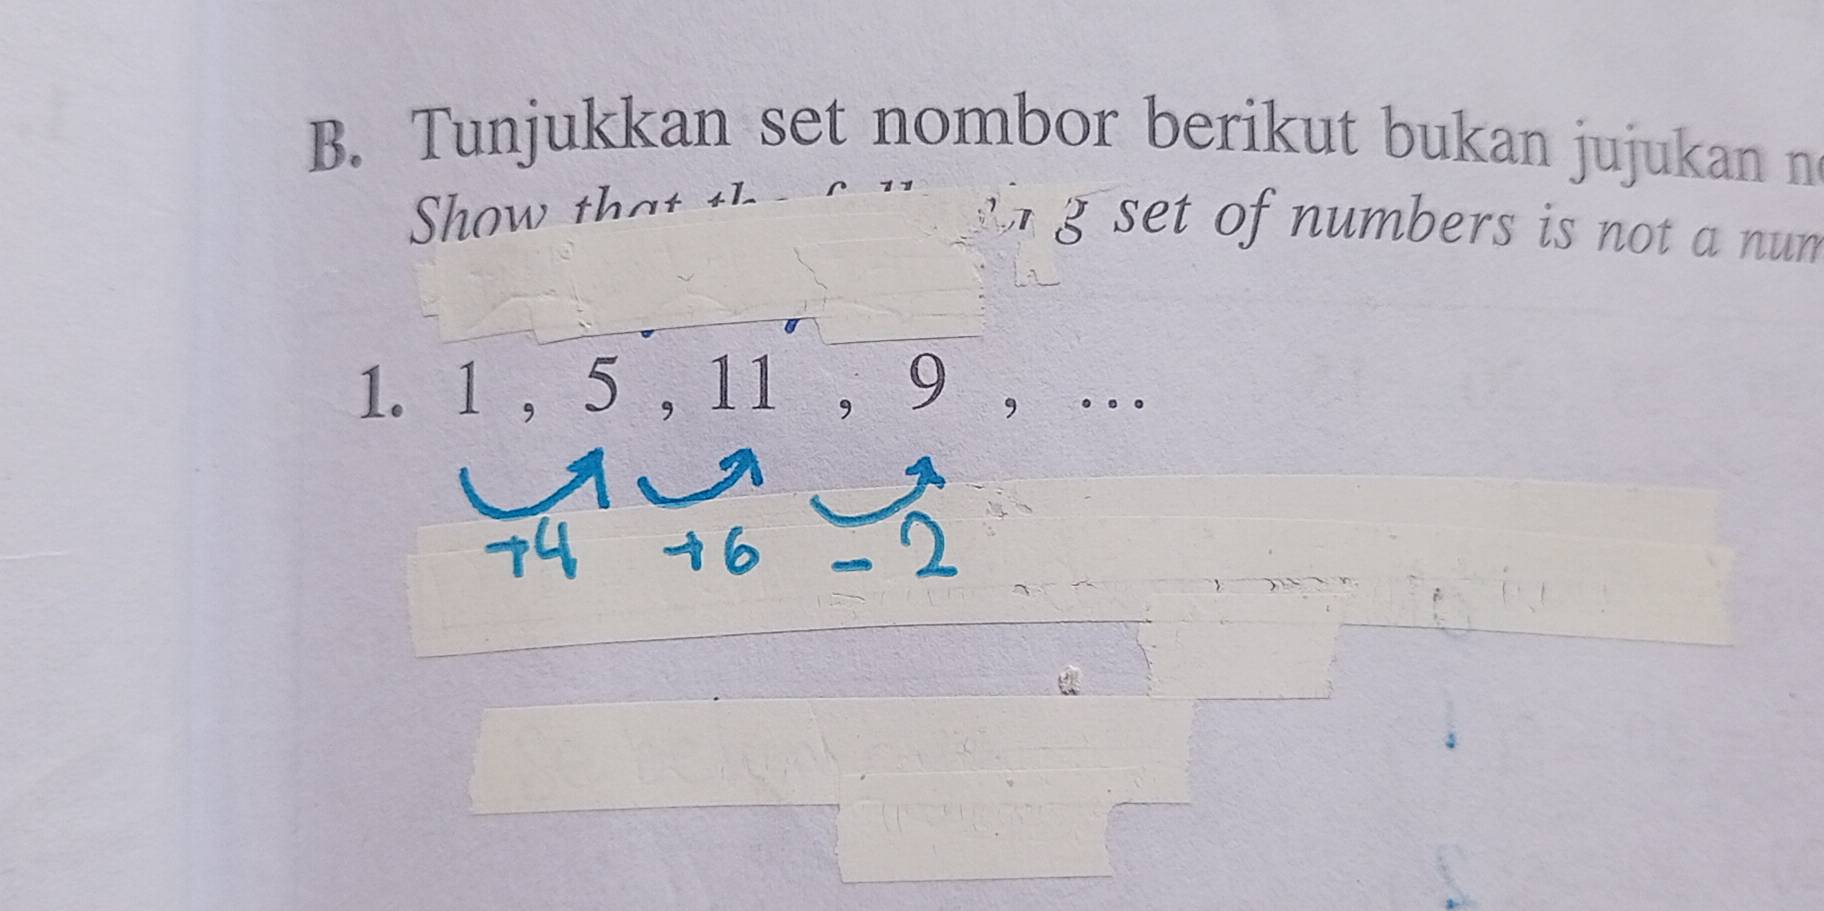 B. Tunjukkan set nombor berikut bukan jujukan
Show that set of numbers is not a
1. 1 , 5 , 11 , 9 , ...
+4 +6 -2